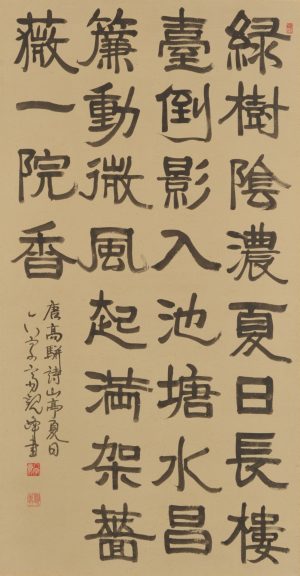 緑樹陰濃夏日長樓
臺倒影入池塘水昌
簾動微風起満架薔
薇一院香
唐高駢詩山亭夏日
観峰書